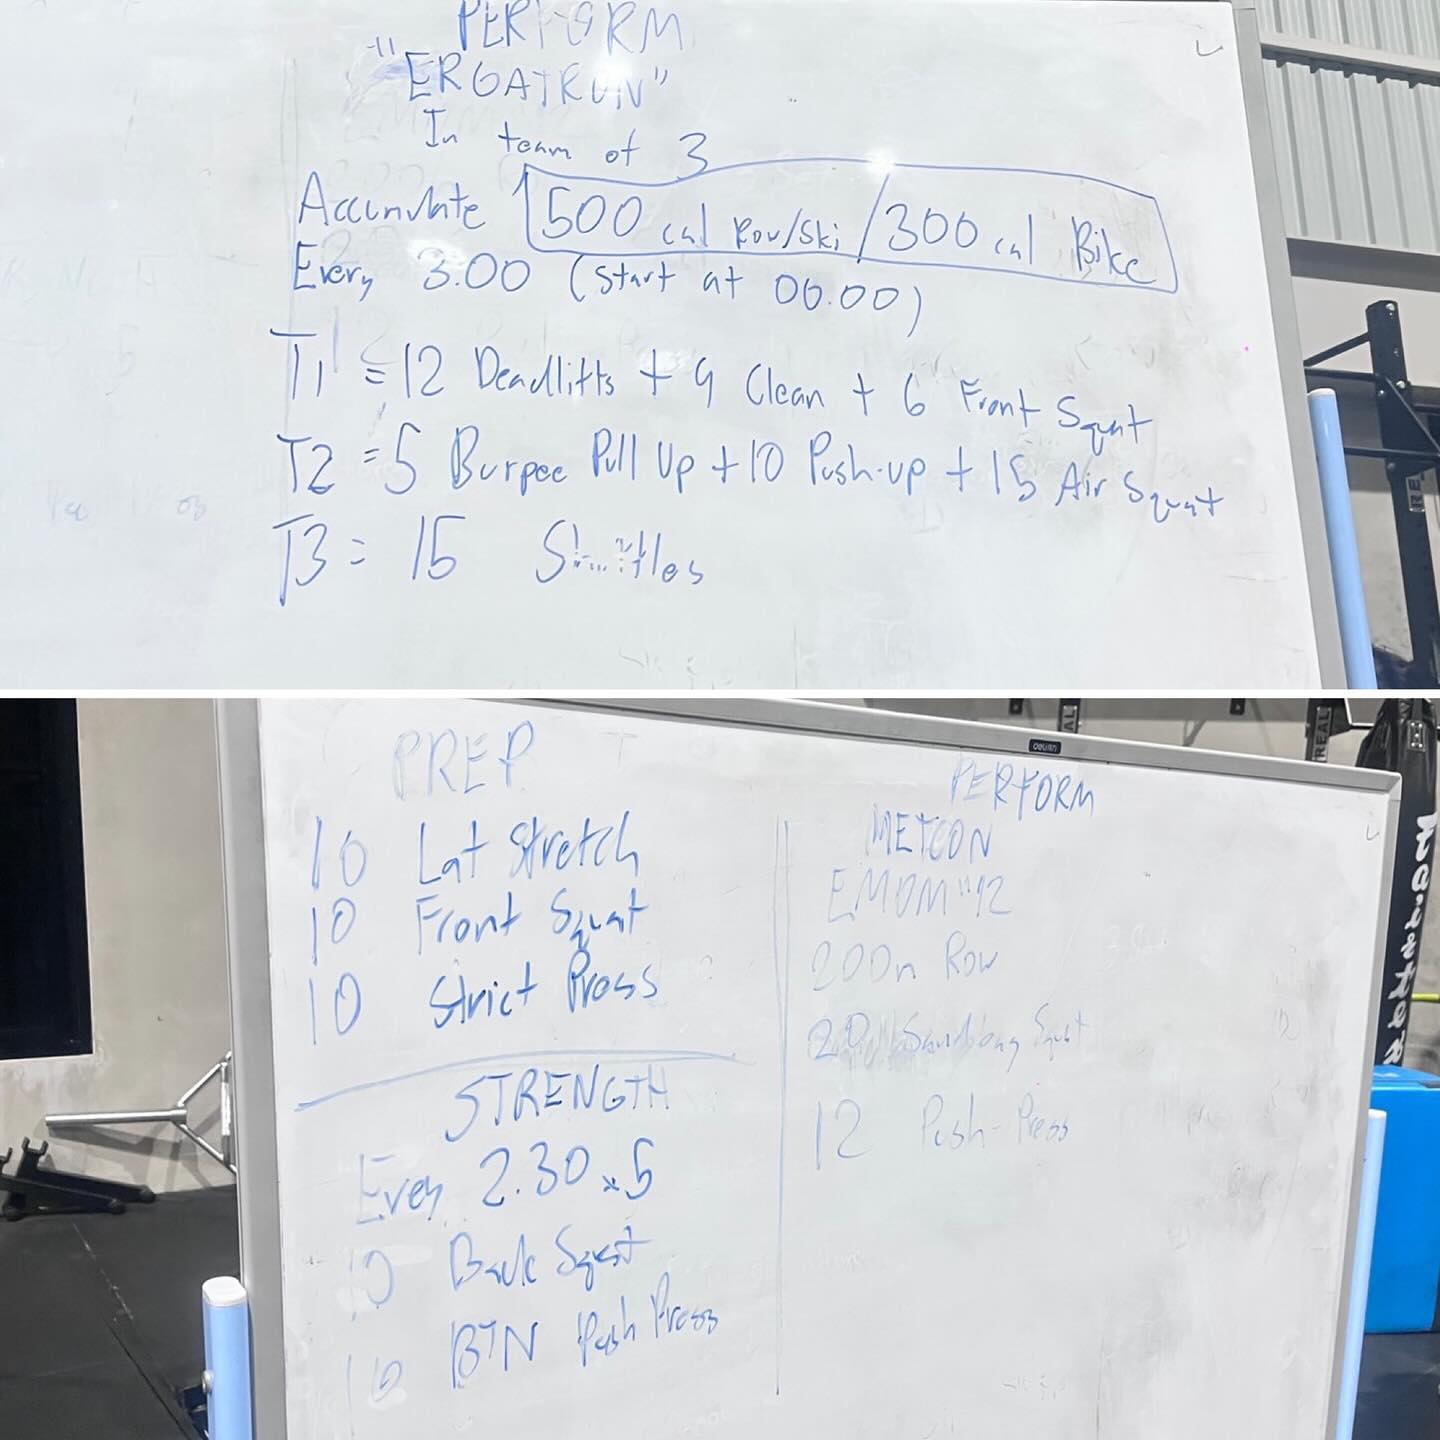 PERFORM
"ERGATRON"
In team of 3
Accumulate 500 cal Row/Ski / 300 cal Bike
Every 3.00 (Start at 00.00)
T1 = 12 Deadlifts + 9 Clean + 6 Front Squat
T2 = 5 Burpee Pull Up + 10 Push-up + 15 Air Squat
T3 = 15 Shuttles
PREP
10 Lat Stretch
10 Front Squat
10 Strict Press
STRENGTH
Every 2.30 x 5
10 Back Squat
10 BTN Push Press
PERFORM
METCON
EMOM "12
200m Row
20 Sandbag Squat
12 Push-Press
deli
REAL
REAL